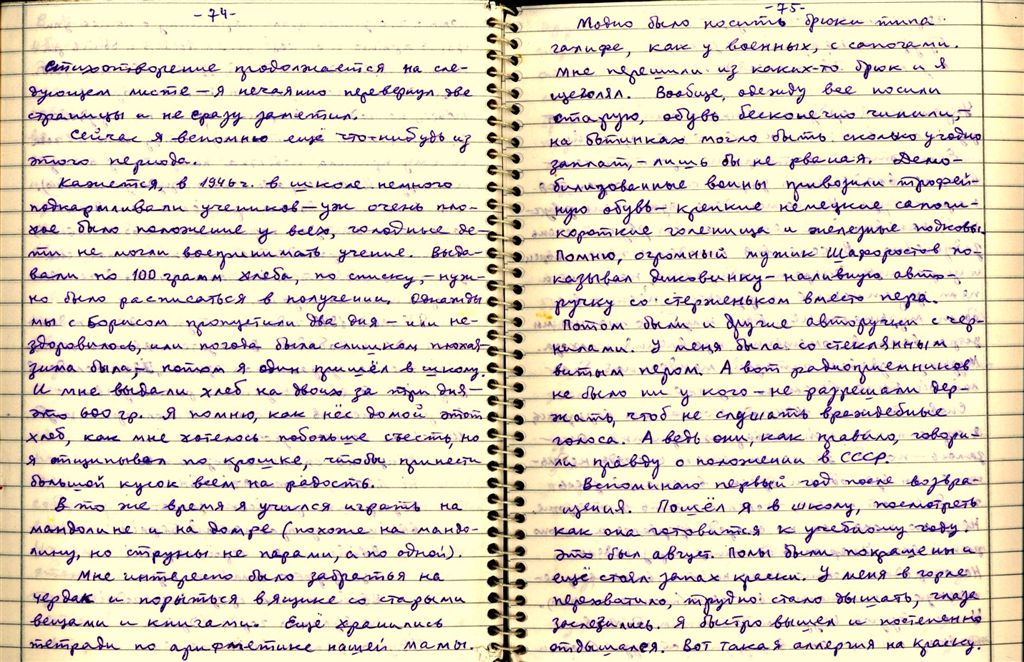 -74-
Стихотворение продолжается на сле-
дующем листе – я нечаянно перевернул две
страницы и не сразу заметил.
Сейчас я вспомню ещё что-нибудь из
этого периода.
Кажется, в 1946 г. в школе немного
подкармливали учеников – уж очень пло-
хое было положение у всех, голодные де-
ти не могли воспринимать учение. Выда-
вали по 100 грамм хлеба, – по списку, – нуж-
но было расписаться в получении. Однажды
мы с Борисом пропустили два дня – или не-
здоровилось, или погода была слишком плохая –
зима была, – потом я один пришёл в школу.
И мне выдали хлеб на двоих за три дня –
это 600 гр. Я помню, как нёс домой этот
хлеб, как мне хотелось побольше съесть, но
я отщипывал по крошке, чтобы принести
большой кусок всем на радость.
В то же время я учился играть на
мандолине и на домре (похоже на мандо-
лину, но струны не парами, а по одной).
Мне интересно было забраться на
чердак и порыться в ящике со старыми
вещами и книгами. Ещё хранились
тетради по арифметике нашей мамы.
-75-
Модно было носить брюки типа
галифе, как у военных, с сапогами.
Мне перешили из каких-то брюк и я
щеголял. Вообще, одежду все носили
старую, обувь бесконечно чинили, –
на ботинках могло быть сколько угодно
заплат, – лишь бы не рваная. Демо-
билизованные воины привозили трофей-
ную обувь – крепкие немецкие сапоги –
короткие голенища и железные подковы.
Помню, огромный мужик Шафоростов по-
казывал диковинку – наливную авто-
ручку со стерженьком вместо пера.
Потом были и другие авторучки с чер-
нилами. У меня была со стеклянным
витым пером. А вот радиоприемников
не было ни у кого – не разрешали дер-
жать, чтоб не слушать враждебные
голоса. А ведь они, как правило, говори-
ли правду о положении в СССР.
Вспоминаю первый год после возвра-
щения. Пошёл я в школу, посмотреть
как она готовится к учебному году.
Это был август. Полы были покрашены и
ещё стоял запах краски. У меня в горле
перехватило, трудно стало дышать, глаза
заслезились. Я быстро вышел и постепенно
отдышался. Вот такая аллергия на краску.